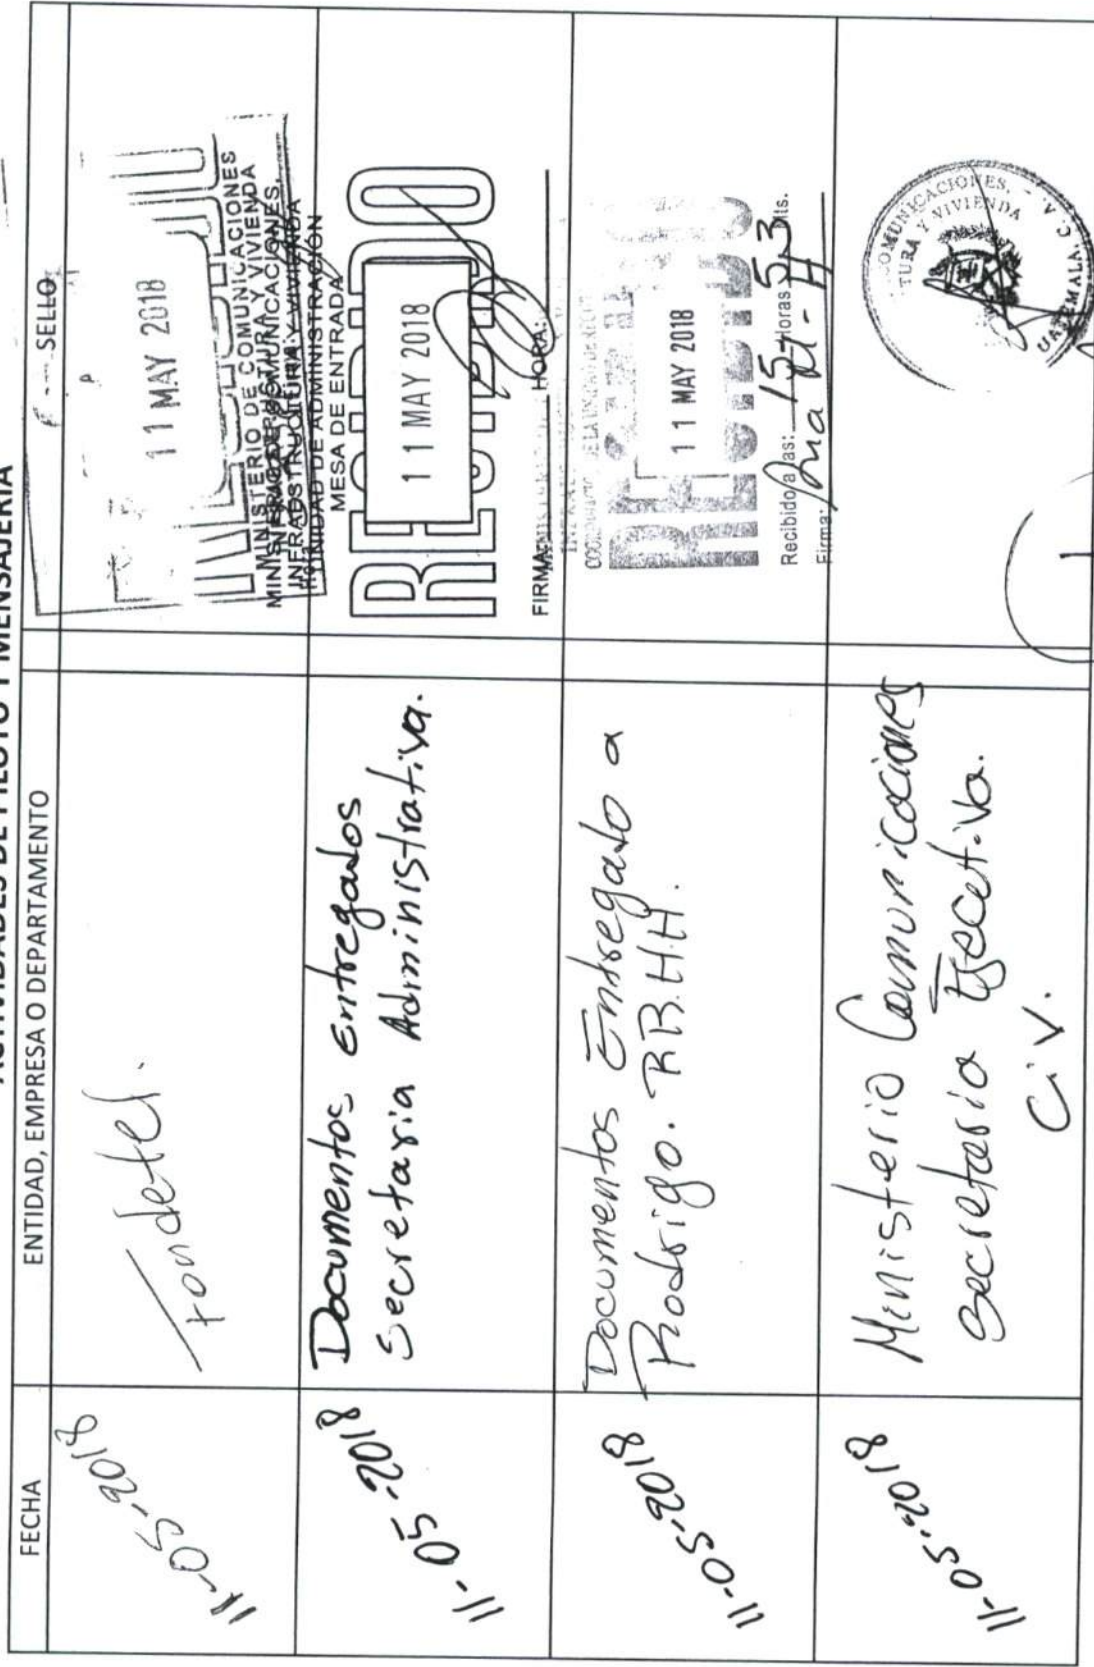 ACTIVIDADES DE PILOTO Y MENSAJERIA
FECHA
ENTIDAD, EMPRESA O DEPARTAMENTO
SELLO
11-05-2018
Fondetel.
11 MAY 2018
MINISTERIO DE COMUNICACIONES
INFRAESTRUCTURA Y VIVIENDA
11-05-2018
Documentos entregados
Secretaria Administrativa.
MINISTERIO DE COMUNICACIONES,
INFRAESTRUCTURA Y VIVIENDA
UNIDAD DE ADMINISTRACIÓN
MESA DE ENTRADA
RECIBIDO
11 MAY 2018
FIRMA: HORA:
11-05-2018
Documentos Entregado a
Rodrigo. RR.HH.
RECIBIDO
11 MAY 2018
Recibido a las: 15 Horas 53 Mts.
Firma:
11-05-2018
Ministerio Comunicaciones
Secretaria Ejecetiva.
CiV.
COMUNICACIONES,
TURA Y VIVIENDA
GUATEMALA, C. A.